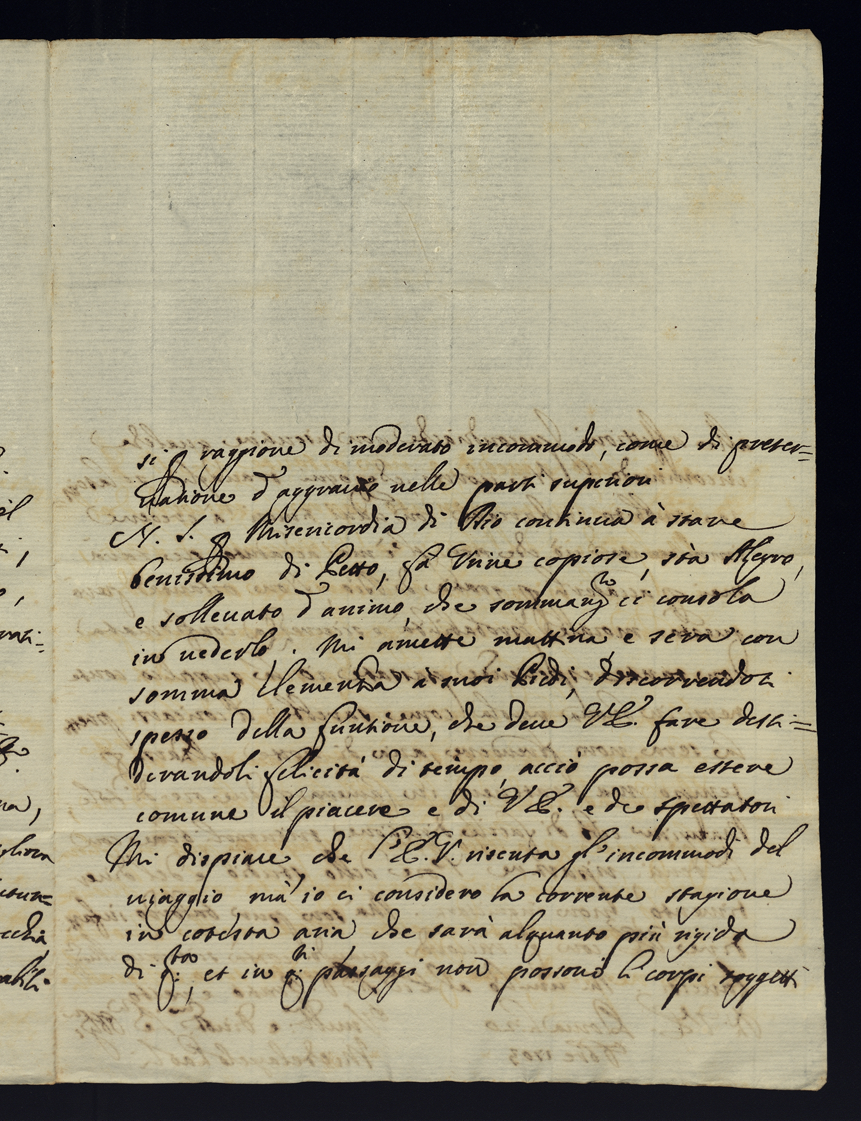 si p ragione di moderato incommodo, come di preser=
uatione d'aggrauio nelle parti superiori
N. S. p Misericordia di Dio continua à stare
benissimo di Petto, fà Vrine copiose, stà Alegro,
e solleuato d'animo, che sommamte ci consola
in uederlo. Mi amette mattina, e sera con
somma Clementia à suoi Piedi, discorrendosi
spesso della funtione, che deue VE. fare desi=
derandoli felicità di tempo, acciò possa essere
comune il piacere e di VE. e de spettatori
Mi dispiace, che l'E.V. risenta gl'incommodi del
uiaggio mà io ci considero la corrente stagione
in cotesta aria che sarà alquanto più rigida
di qsta, et in qti passaggi non possono li corpi soggetti